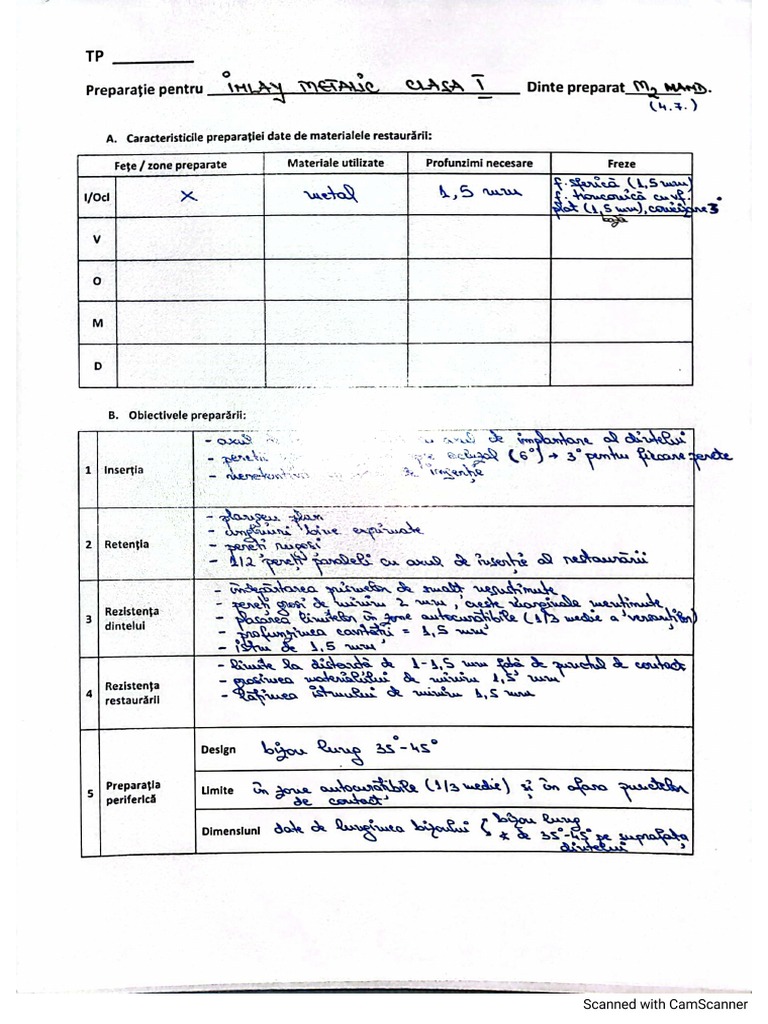 TP
Preparație pentru INLAY METALIC CLASA I Dinte preparat M2 MAND.
(4.7.)
A. Caracteristicile preparației date de materialele restaurării:
Fețe / zone preparate Materiale utilizate Profunzimi necesare Freze
I/Ocl X metal 1,5 mm f. sferică (1,5 mm)
f. tronconică cu vf.
plat (1,5 mm), conicitate 3°
V
O
M
D
B. Obiectivele preparării:
1 Inserția
- axul cu axul de implantare al dintelui
- pereții ocluzal (6°) → 3° pentru fiecare perete
- de inserție
2 Retenția
- planșeu plan
- unghiuri bine exprimate
- pereți rugoși
- 1/2 pereți paraleli cu axul de inserție al restaurării
3 Rezistența dintelui
- îndepărtarea prismelor de smalț nesusținute
- pereți groși de minim 2 mm, creste marginale menținute
- plasarea limitelor în zone autocurățibile (1/3 medie a versanților)
- profunzimea cavității = 1,5 mm
- istm de 1,5 mm
4 Rezistența restaurării
- limite la distanță de 1-1,5 mm față de punctul de contact
- grosimea materialului de minim 1,5 mm
- lățimea istmului de minim 1,5 mm
5 Preparația periferică
Design bizou lung 35°-45°
Limite în zone autocurățibile (1/3 medie) și în afara punctelor
de contact
Dimensiuni date de lungimea bizoului bizou lung
de 35°-45° pe suprafața
dintelui
Scanned with CamScanner